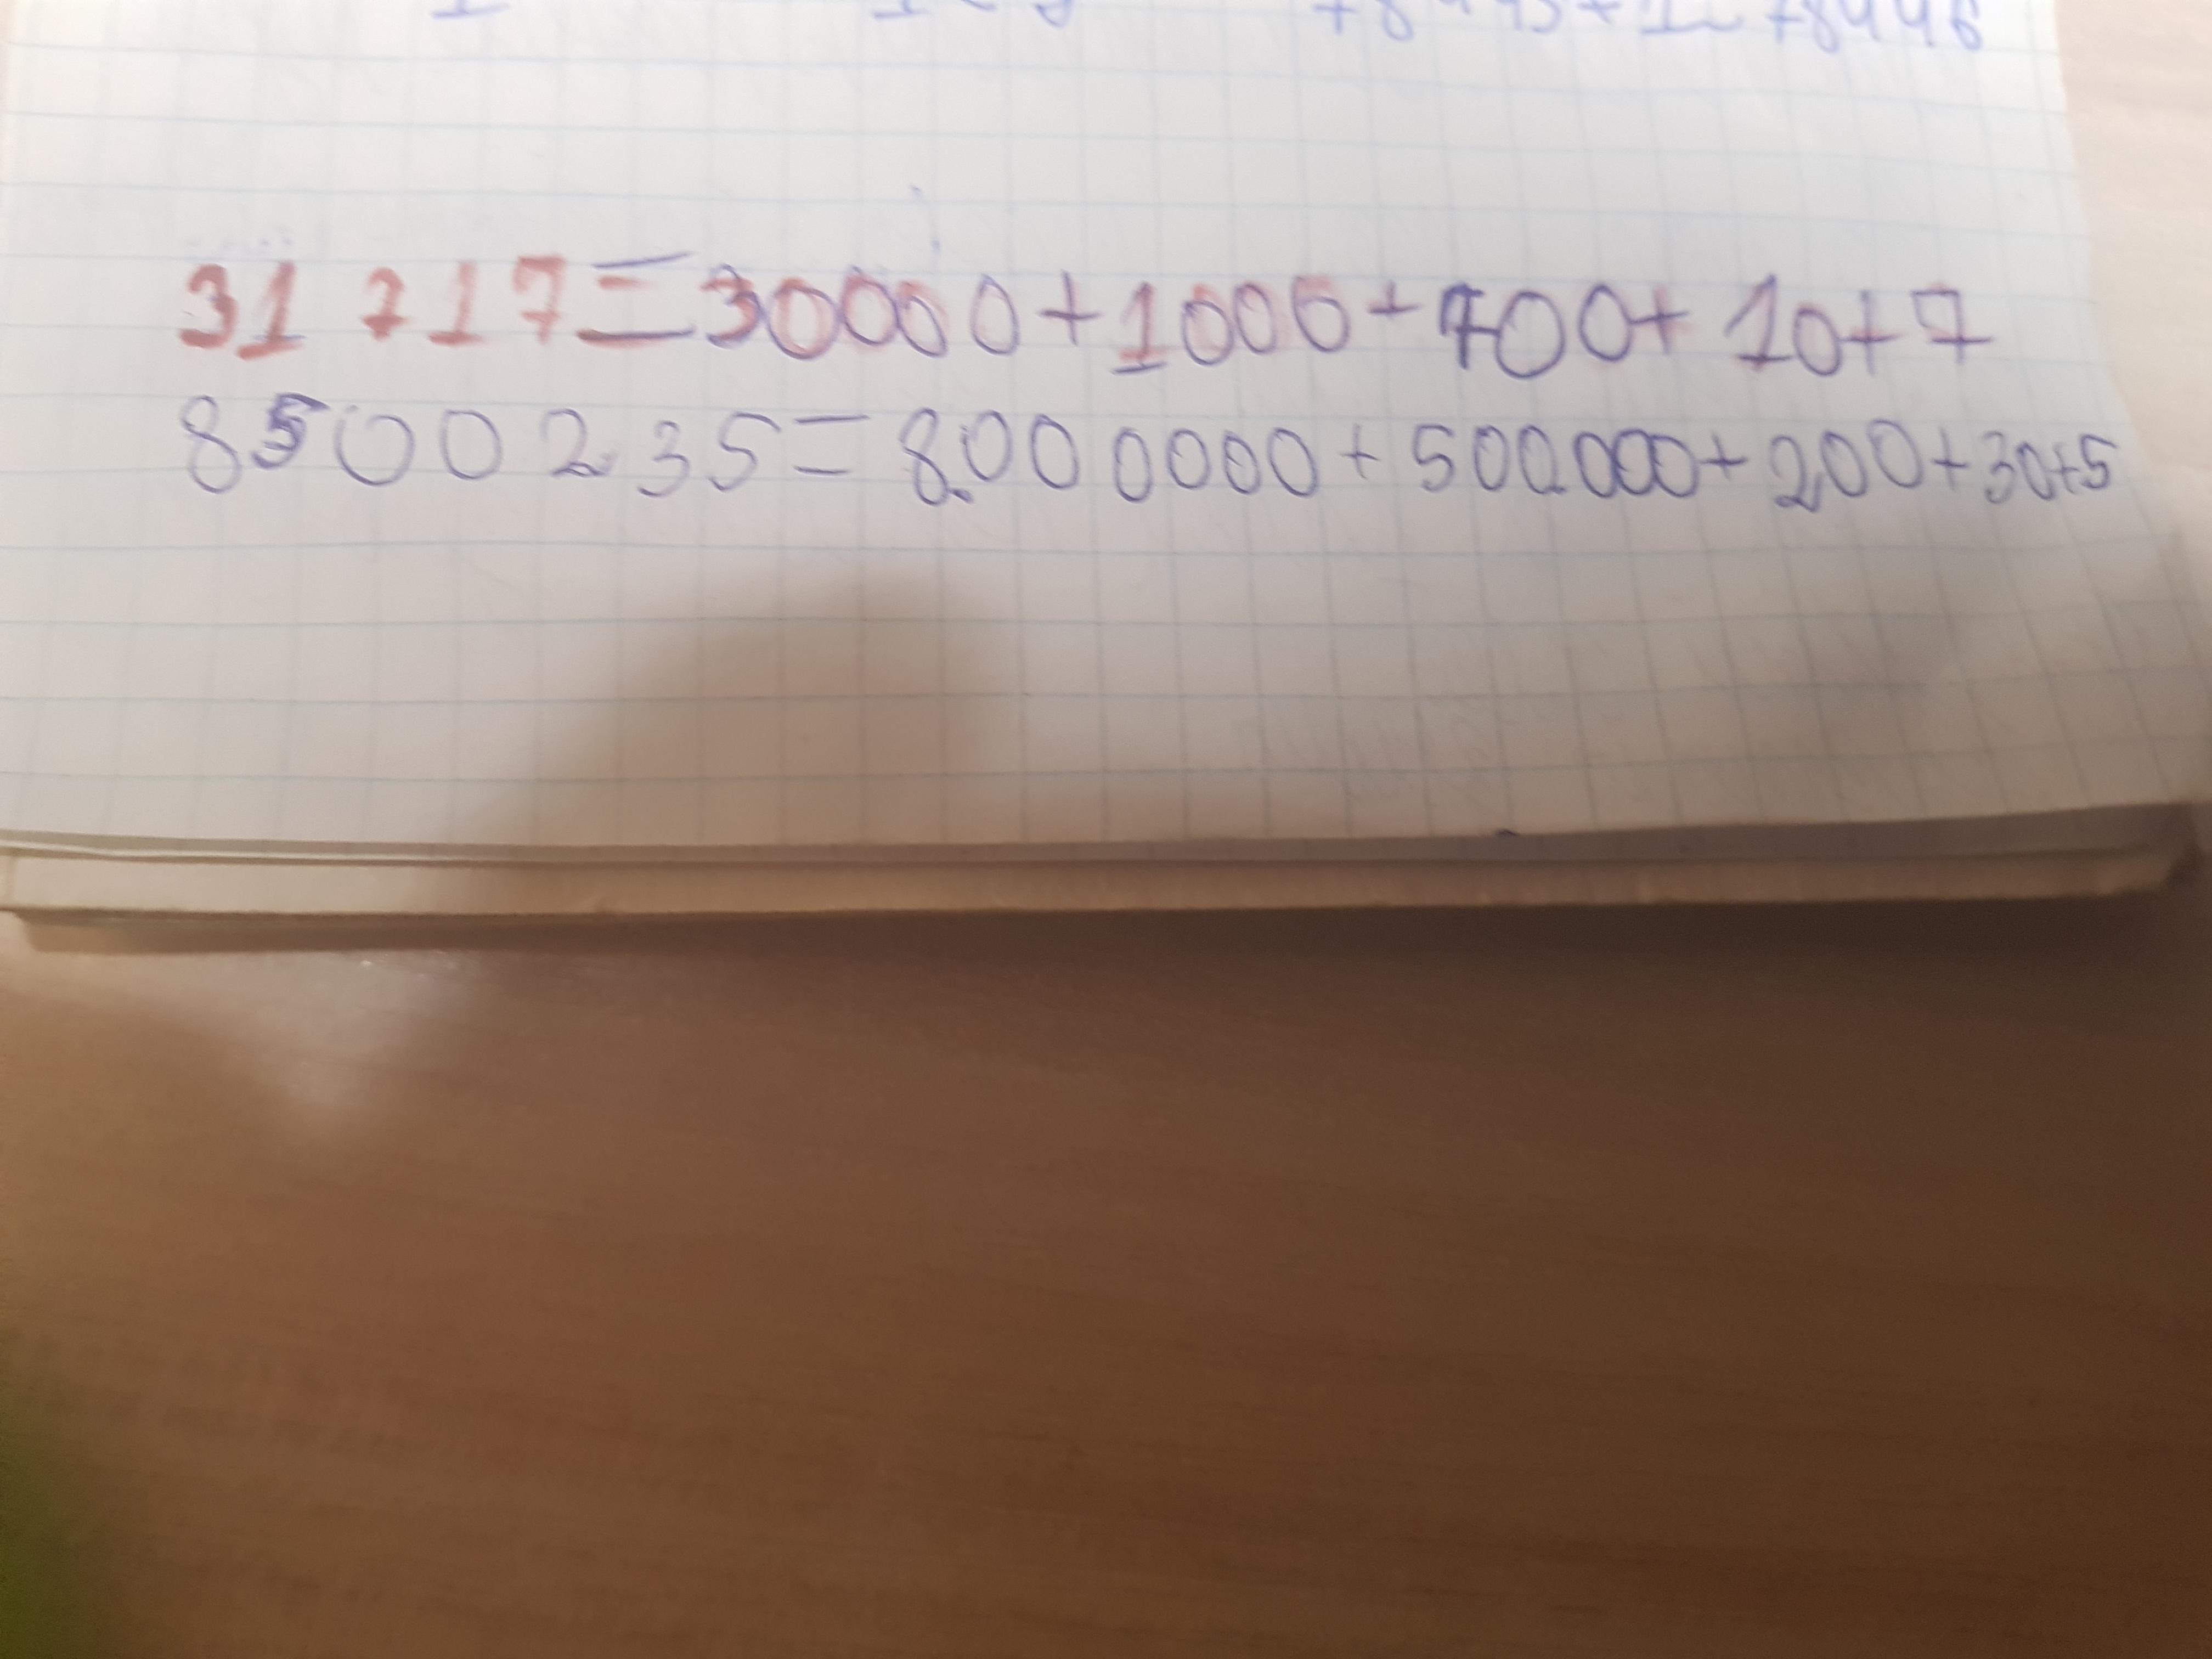 31 717=30000+1000+700+10+7
8500235=8000000+500000+200+30+5